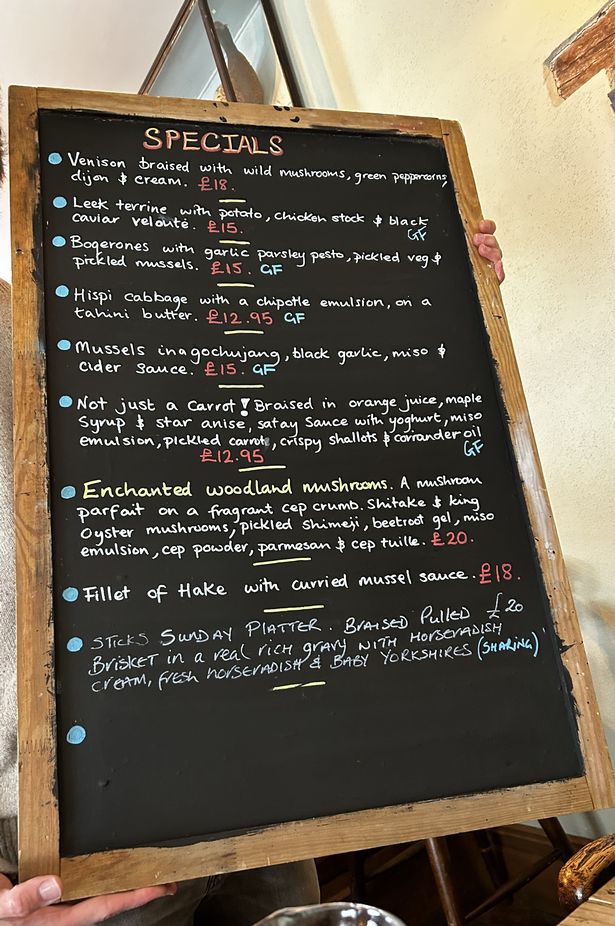 SPECIALS
Venison braised with wild mushrooms, green peppercorns,
dijon & cream. £18.
Leek terrine with potato, chicken stock & black
caviar velouté. £15. GF
Boqerones with garlic parsley pesto, pickled veg &
pickled mussels. £15. GF
Hispi cabbage with a chipotle emulsion, on a
tahini butter. £12.95 GF
Mussels in a gochujang, black garlic, miso &
cider sauce. £15. GF
Not just a carrot! Braised in orange juice, maple
Syrup & star anise, satay sauce with yoghurt, miso
emulsion, pickled carrot, crispy shallots & corriander oil
£12.95 GF
Enchanted woodland mushrooms. A mushroom
parfait on a fragrant cep crumb. Shitake & king
Oyster mushrooms, pickled shimeji, beetroot gel, miso
emulsion, cep powder, parmesan & cep tuille. £20.
Fillet of Hake with curried mussel sauce. £18.
STICKS SUNDAY PLATTER. BRAISED PULLED £20
BRISKET in a real rich gravy WITH HORSERADISH
CREAM, fresh HORSERADISH & BABY YORKSHIRES (SHARING)